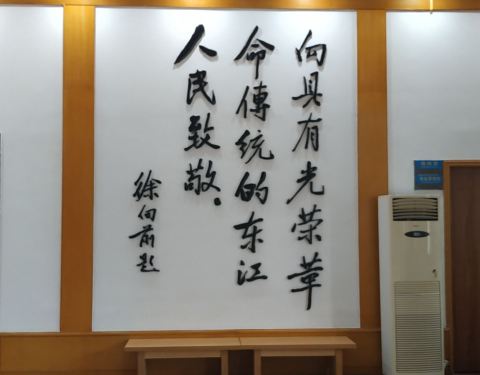 向具有光荣革
命傳统的东江
人民致敬。
徐向前题